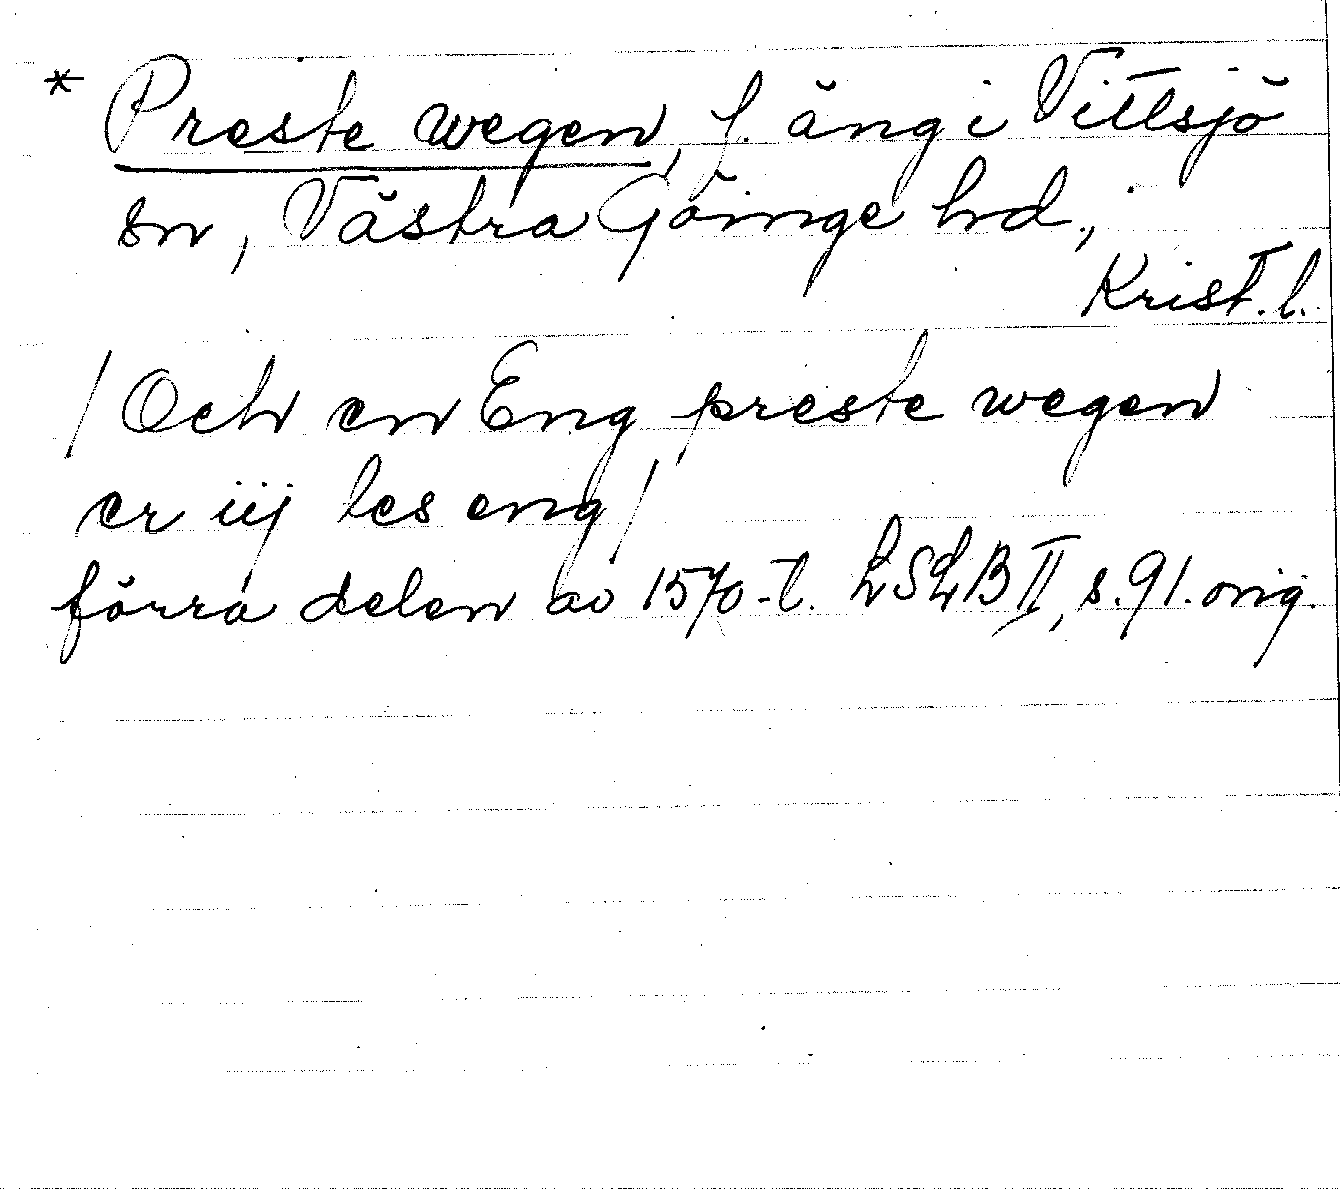 * Preste wegen, f. äng i Vittsjö
sn, Västra Göinge hd,
Krist. l.
/Och en Eng preste wegen
er iij les eng/
förra delen av 1570-t. LSLB II, s. 91. orig.